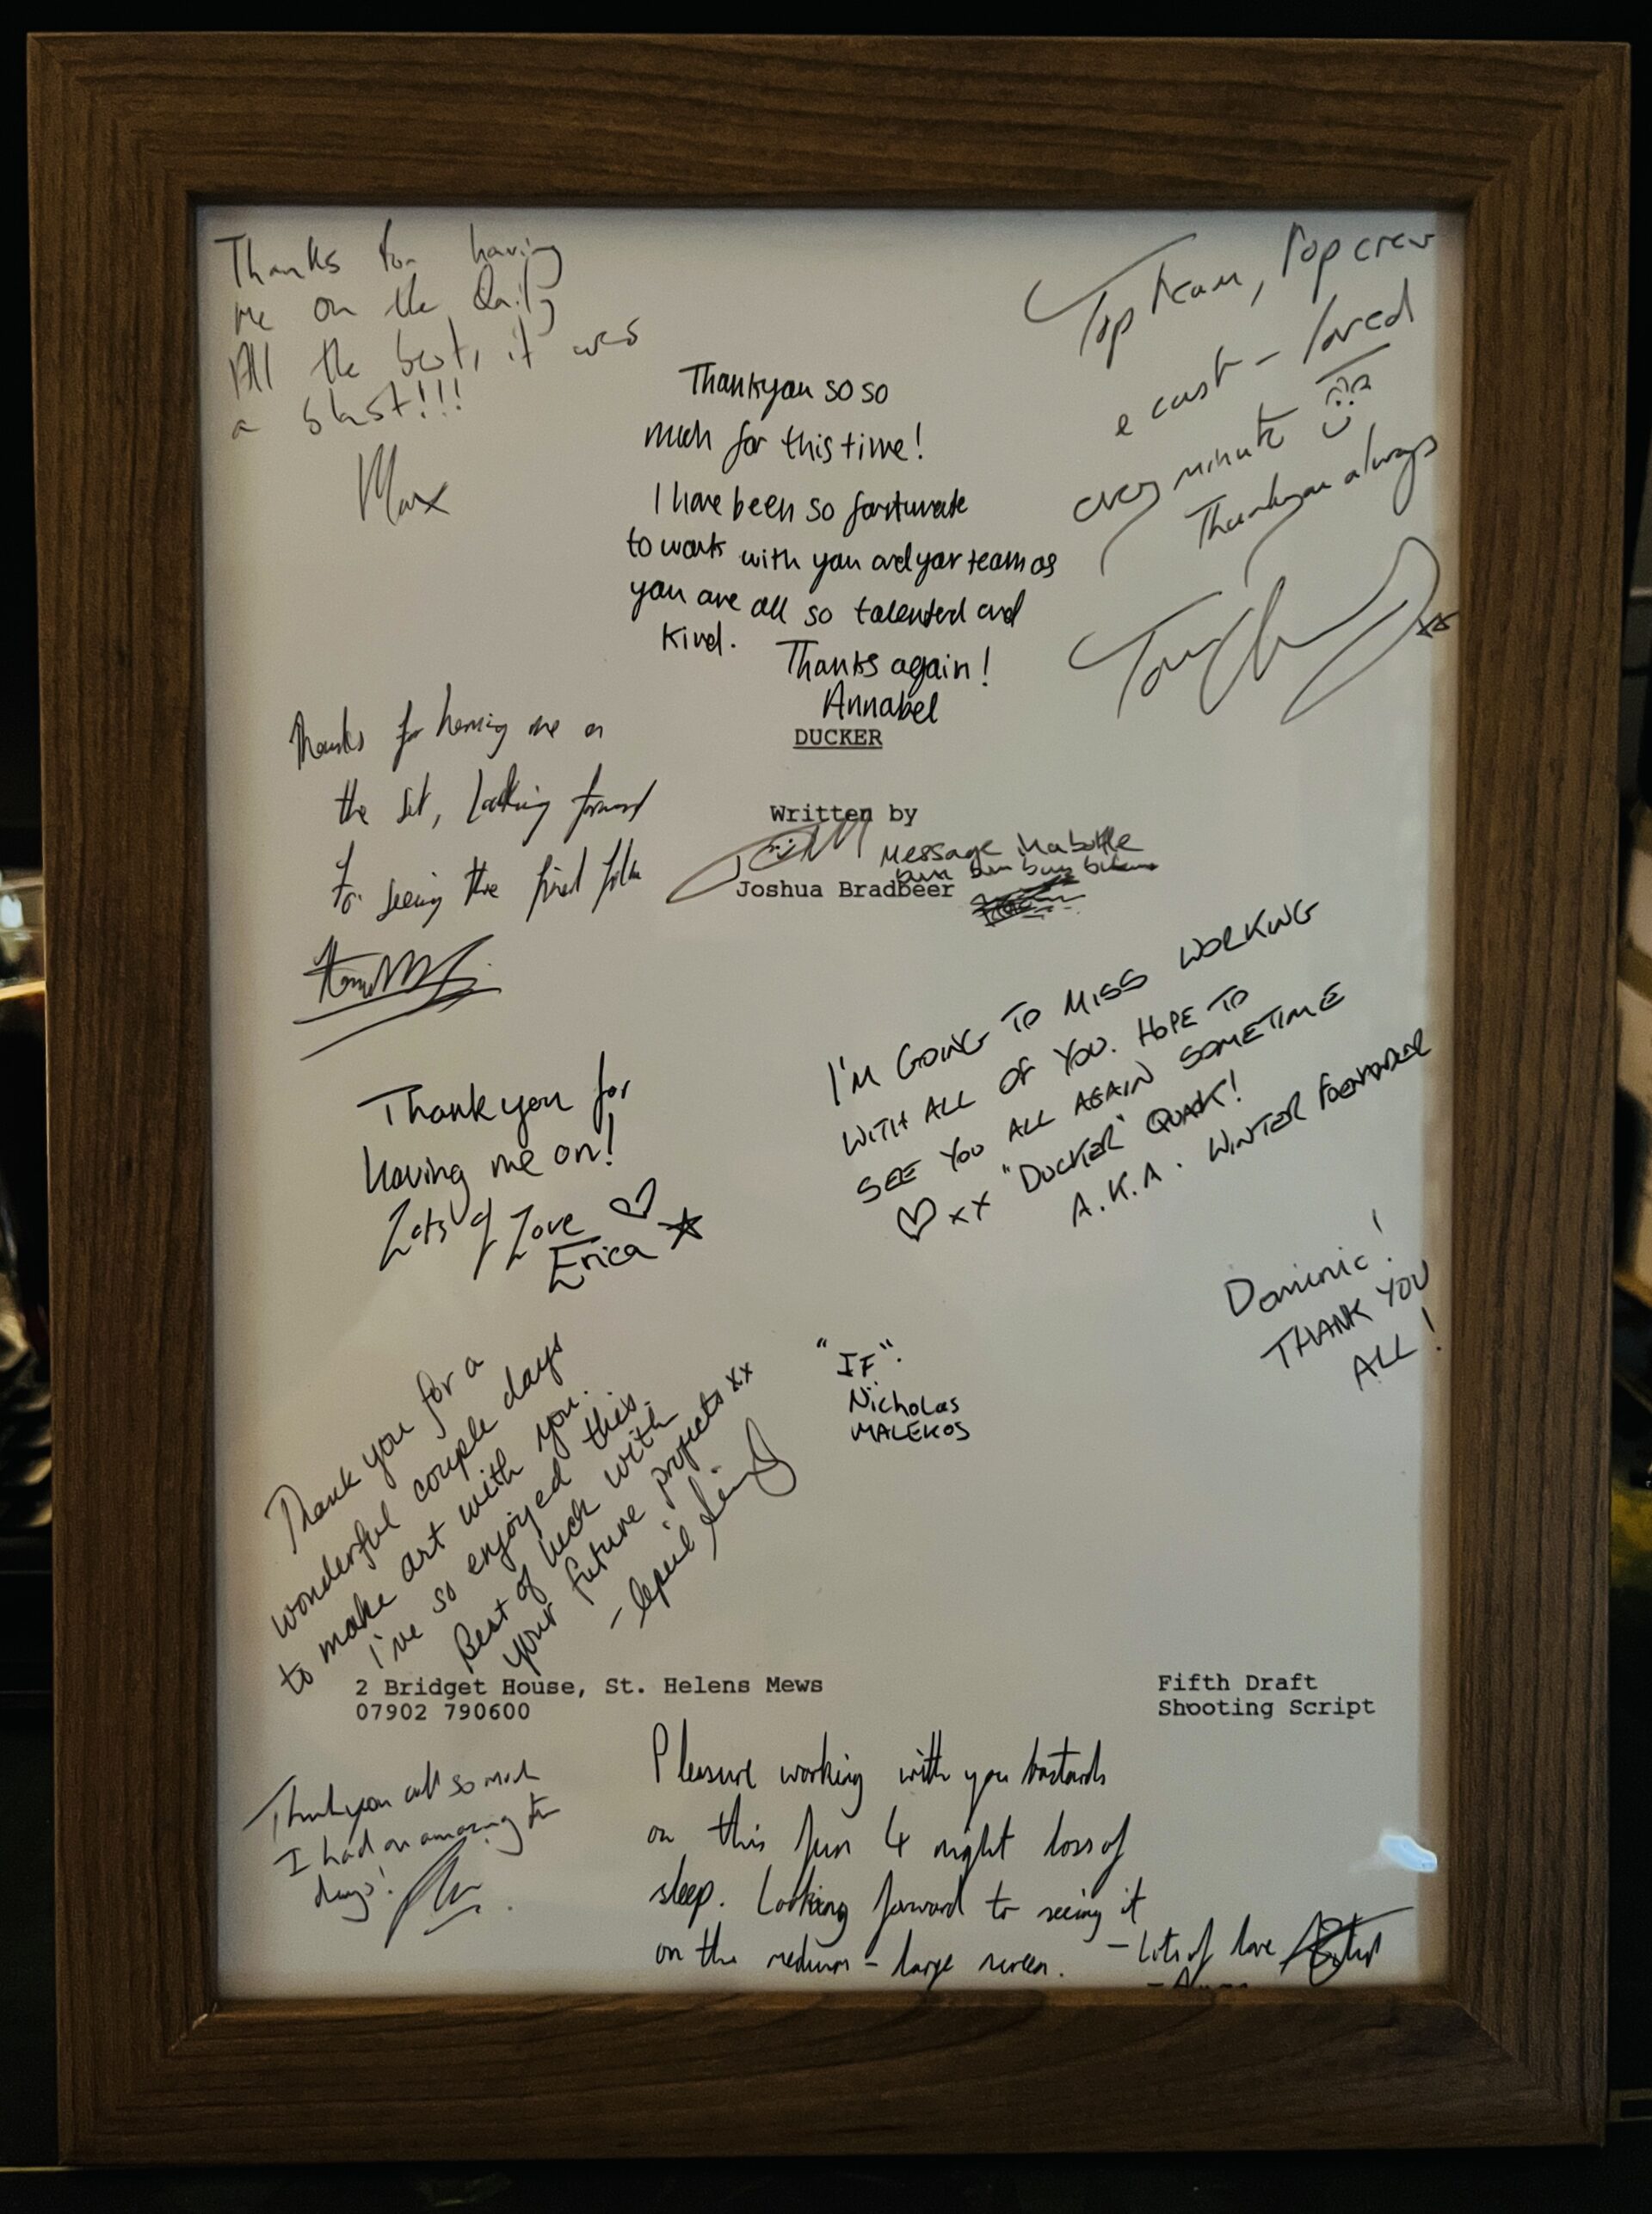 Thanks for having
me on the Daily
All the best, it was
a blast!!!
Max
Top team, Top crew
e cast - loved
every minute
Thankyou always
Thankyou so so
much for this time!
I have been so fortunate
to work with you and your team as
you are all so talented and
kind.
Thanks again!
Annabel
DUCKER
Thanks for having me on
the set, Looking forward
for seeing the final film
Written by
Message in a bottle
Joshua Bradbeer
I'M GOING TO MISS WORKING
WITH ALL OF YOU. HOPE TO
SEE YOU ALL AGAIN SOMETIME
xx "DUCKER" QUAK!
A.K.A. WINTER
Thank you for
having me on!
Lots of Love
Erica
Dominic!
THANK YOU
ALL!
"IF".
Nicholas
MALEKOS
Thank you for a
wonderful couple days
to make art with you.
I've so enjoyed this.
Best of luck with
your future projects xx
- April
2 Bridget House, St. Helens Mews
07902 790600
Fifth Draft
Shooting Script
Thank you all so much
I had an amazing
days!
Pleasure working with you bastards
on this fun 4 night loss of
sleep. Looking forward to seeing it
on the medium - large screen. - Lots of love